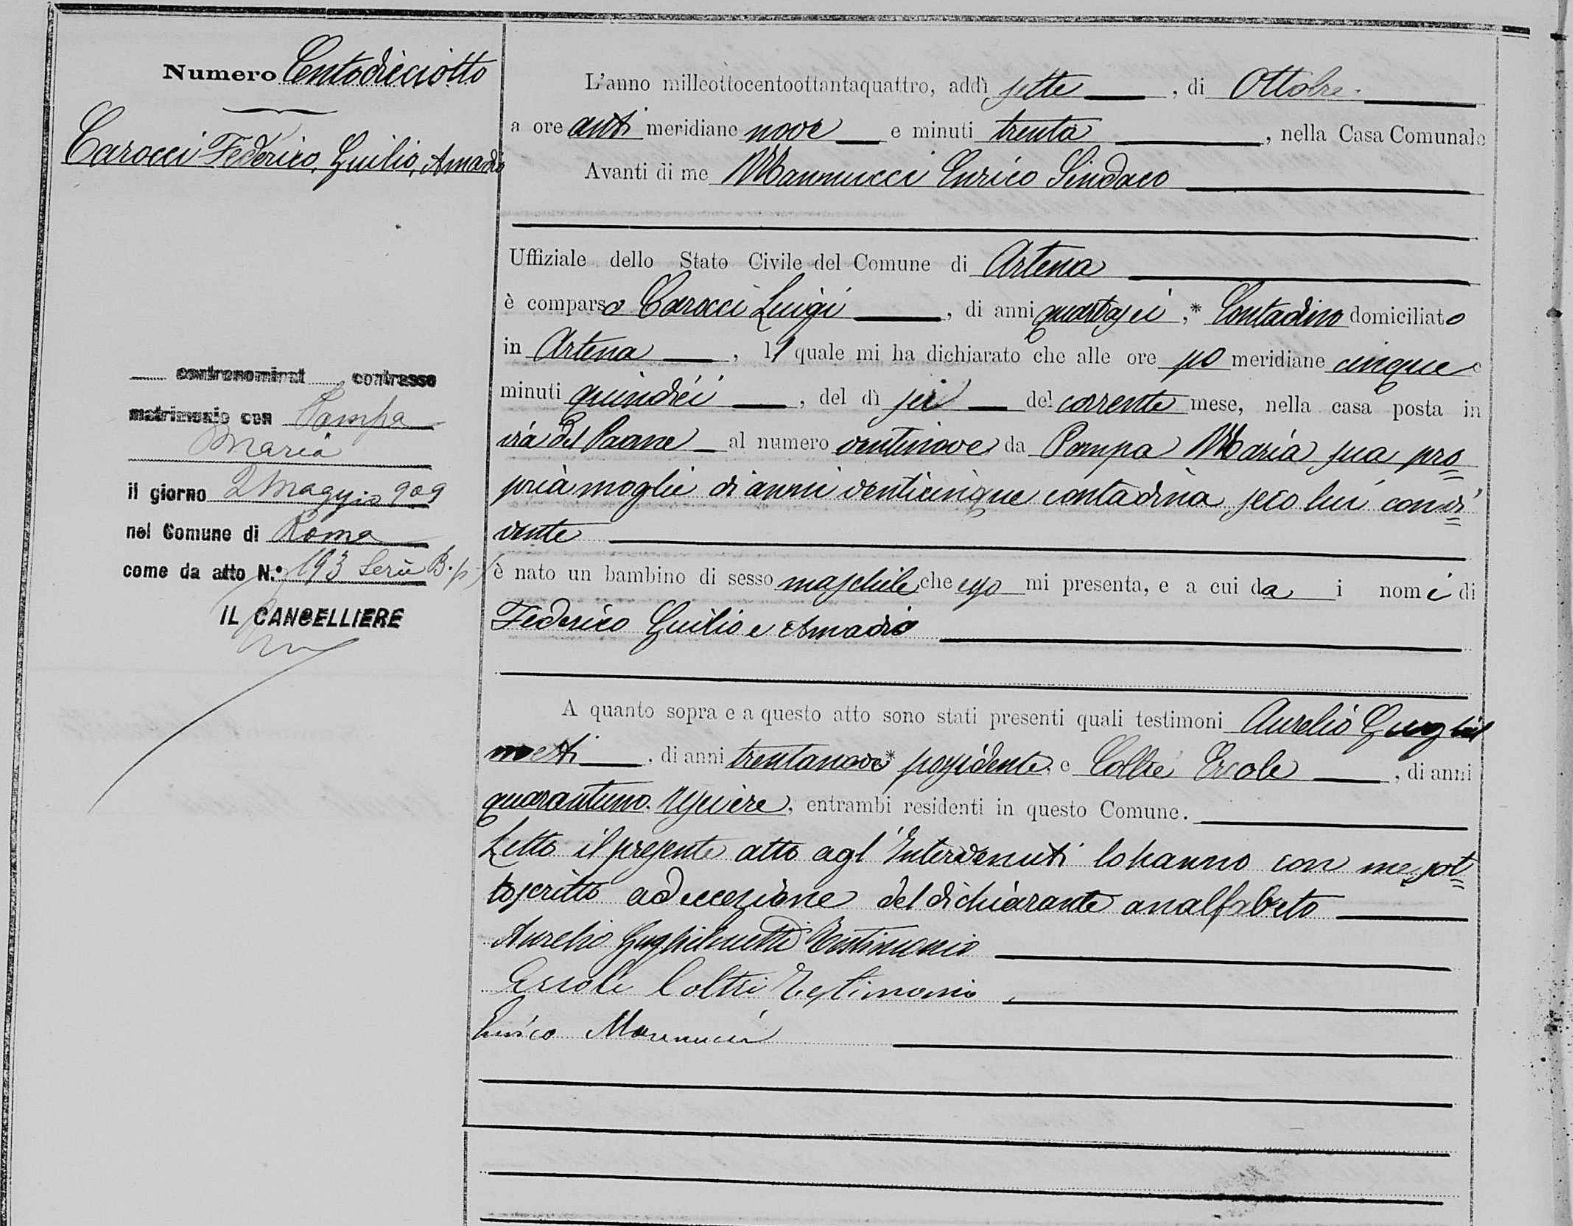 Numero Centodiciotto
Carocci Federico, Guilio, Amadio
contronominat contrasse
matrimonio con Pampa
Maria
il giorno 2 Maggio 909
nel Comune di Roma
come da atto N.° 193 Serie B. p.
IL CANCELLIERE
L'anno milleottocentoottantaquattro, addì sette, di Ottobre
a ore anti meridiane nove e minuti trenta, nella Casa Comunale
Avanti di me Mannucci Enrico Sindaco
Uffiziale dello Stato Civile del Comune di Artena
è comparso Carocci Luigi, di anni quarta sei,* Contadino domiciliato
in Artena, il quale mi ha dichiarato che alle ore po meridiane cinque e
minuti quindici, del dì sei del corrente mese, nella casa posta in
via del al numero ventinove da Pampa Maria sua pro=
pria moglie di anni venticinque contadina seco lui convi=
vente
è nato un bambino di sesso maschile che ego mi presenta, e a cui da i nomi di
Federico Guilio e Amadio
A quanto sopra e a questo atto sono stati presenti quali testimoni Aurelio Gugliel
metti, di anni trentanove* possidente, e Coltre Ercole, di anni
quarantuno, usciere, entrambi residenti in questo Comune.
Letto il presente atto agl'Intervenuti lo hanno con me sot=
toscritto ad eccezione del dichiarante analfabeto
Aurelio Guglielmetti Testimonio
Ercole Coltri Testimonio
Enrico Mannucci